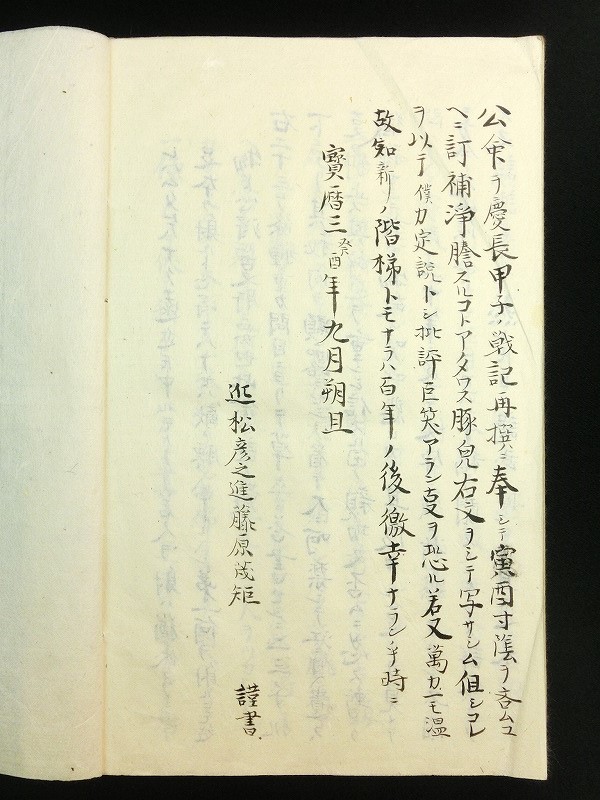 公命ヲ慶長甲子ノ戦記再撰ニ奉シテ寅酉寸蔭ヲ吝ムユ
ヘニ訂補浄謄スルコトアタワス豚ノ皃右文ヲシテ写サシム但シコレ
ヲ以于僕カ定説トシ批評巨笑アラン支ヲ恐ル若又萬カ一モ温
故知新ノ階梯トモナラハ百年ノ後ノ徼幸ナランヤ時ニ
寶暦三癸酉年九月朔旦
近松彦之進藤原茂矩
謹書